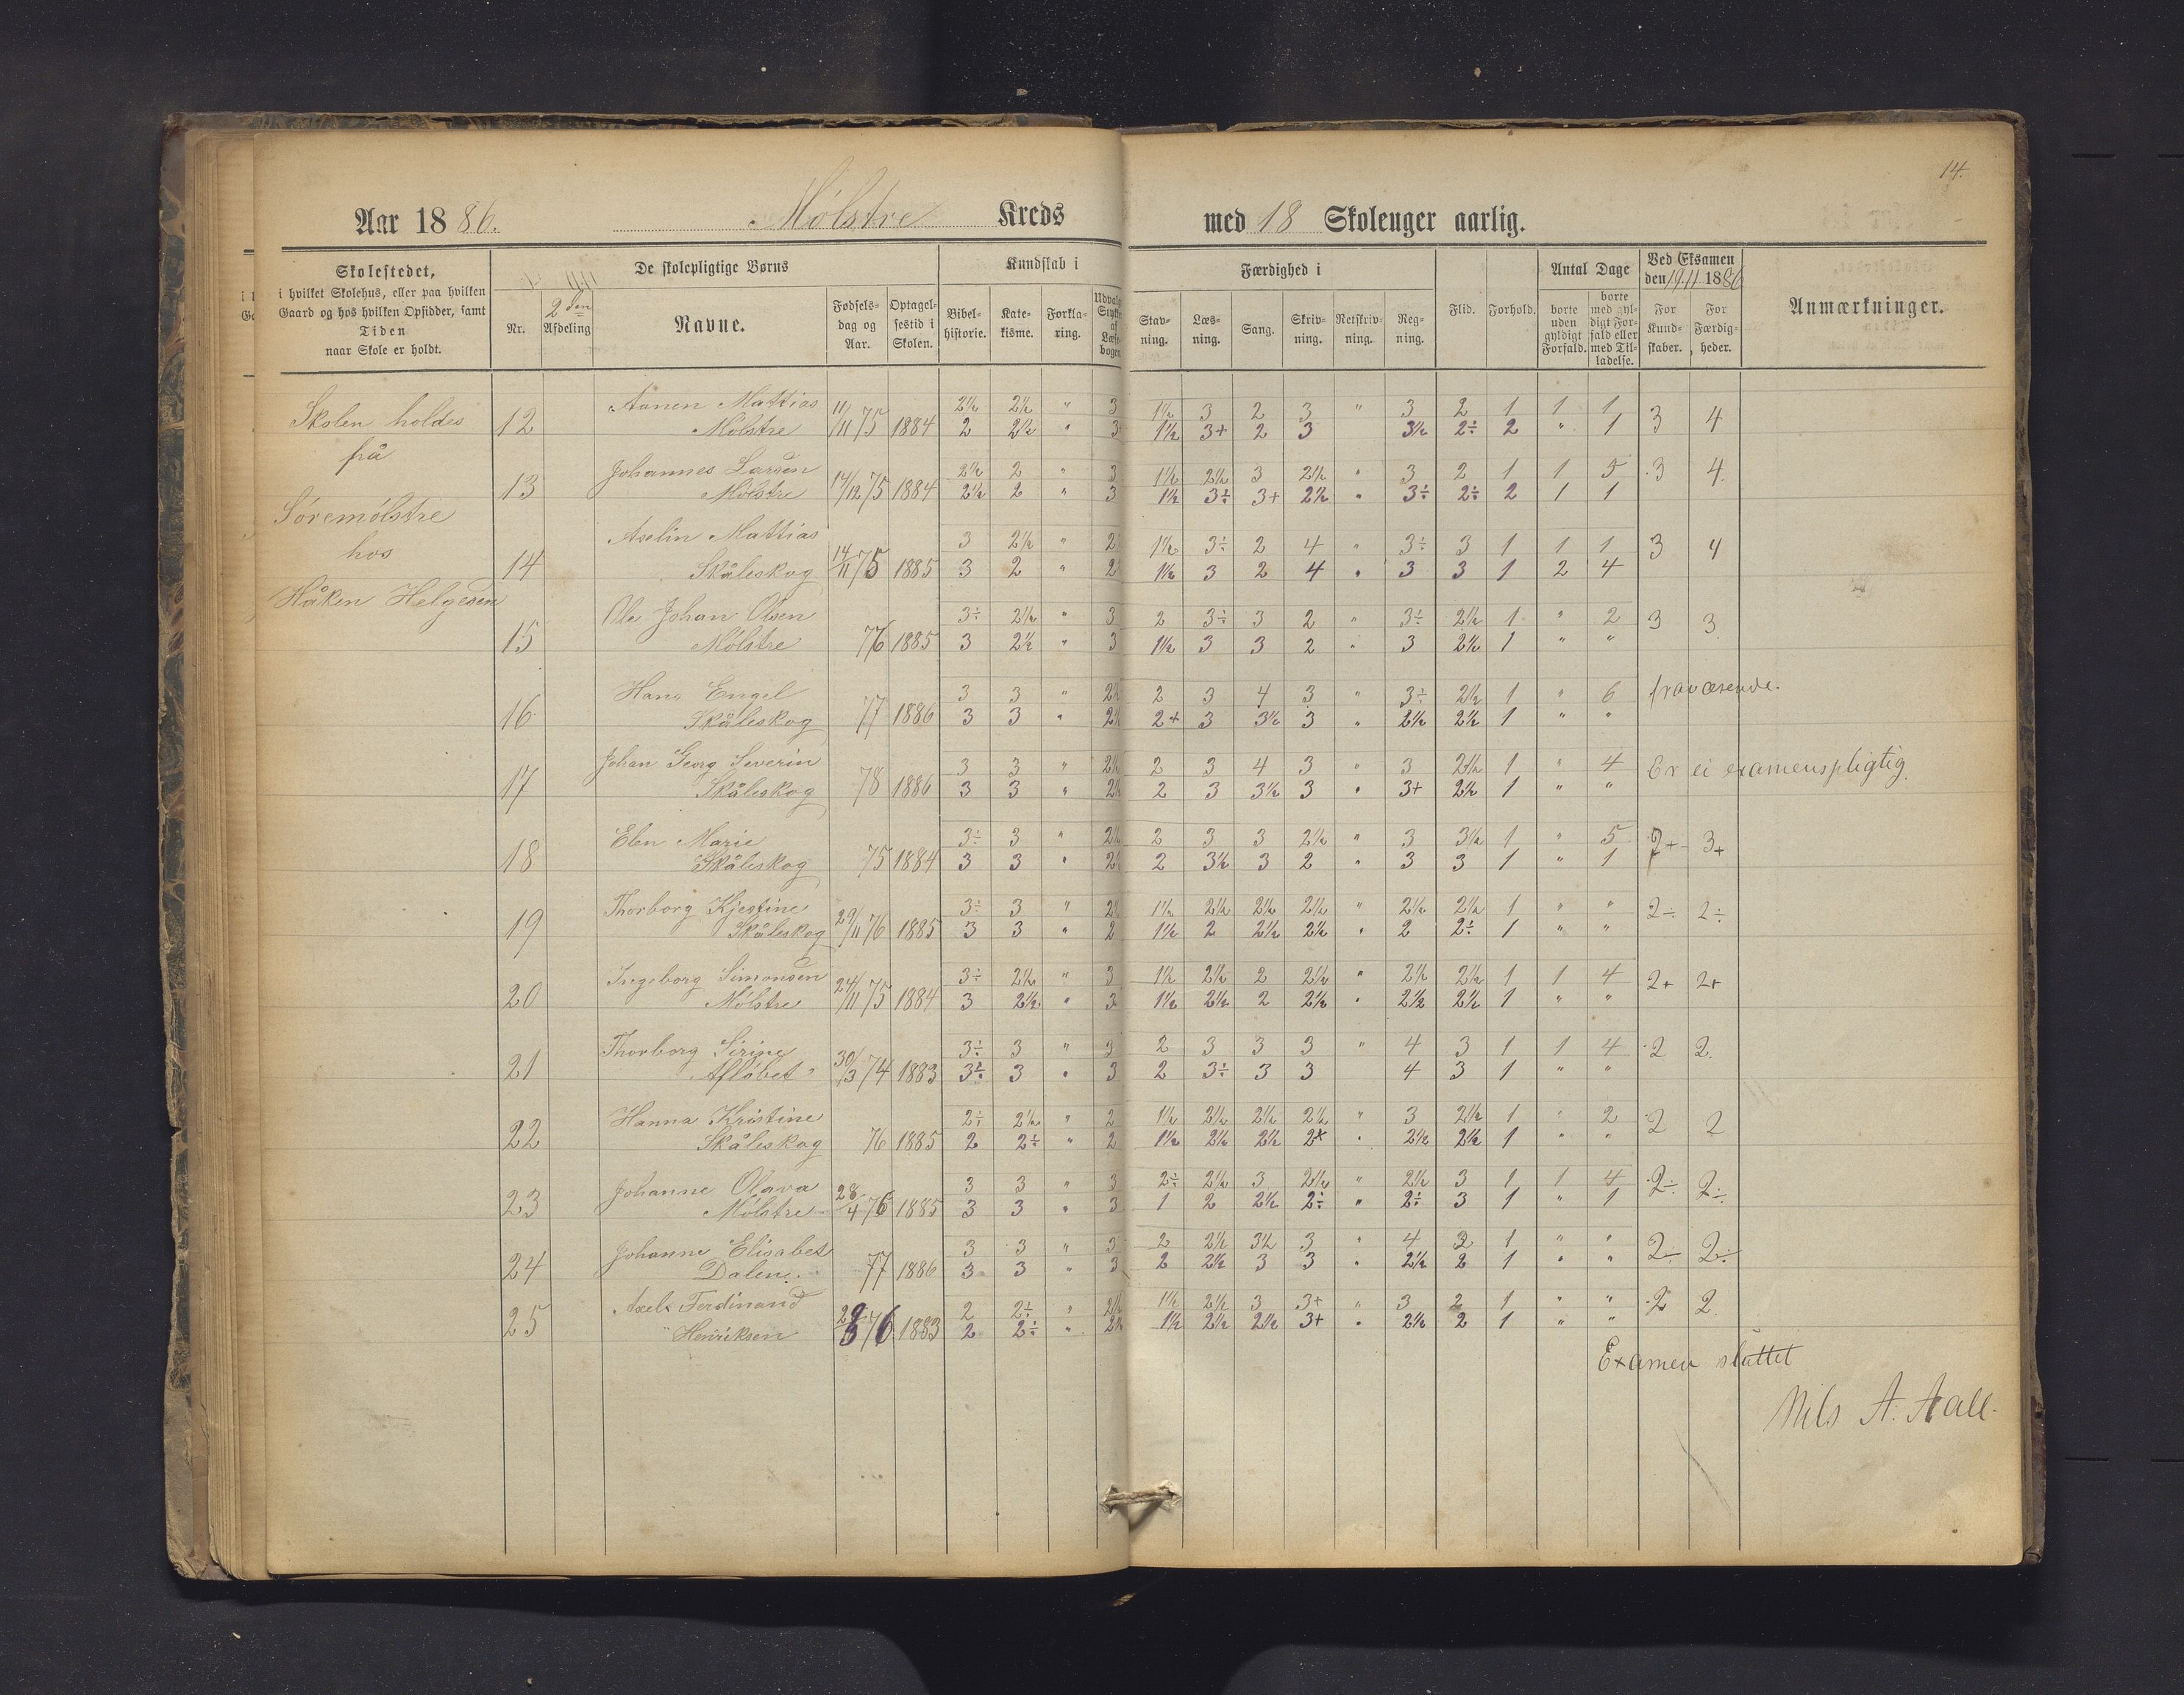 14.
Aar 1886. Mólstre Kreds med 18 Skoleuger aarlig.
Skolestedet,
i hvilket Skolehus, eller paa hvilken
Gaard og hos hvilken Opsidder, samt
Tiden
naar Skole er holdt.
De skolepligtige Børns
Nr.
2den
Afdeling
Navne.
Fødsels-
dag og
Aar.
Optagel-
sestid i
Skolen.
Kundskab i
Bibel-
historie.
Kate-
kisme.
Forkla-
ring.
Udvalgte
Stykker
af
Læse-
bogen
Færdighed i
Stav-
ning.
Læs-
ning.
Sang.
Skriv-
ning.
Retskriv-
ning.
Reg-
ning.
Flid.
Forhold.
Antal Dage
borte
uden
gyldigt
Forfald.
borte
med gyl-
digt For-
fald eller
med Til-
ladelse.
Ved Eksamen
den 19.11 1886
For
Kund-
skaber.
For
Færdig-
heder.
Anmærkninger.
Skolen holdes
på
Sóremólstre
hos
Håken Helgesen
Aanen Mattias 11 2½ 2½ " 3 1½ 3 2 3 " 3 2 1 1 1
12 Mólstre /11 75 1884 2 2½ " 3 1½ 3+ 2 3 3½ 2÷ 2 " 1 3 4
Johannes Larsen 2½ 2 " 3 1½ 2½ 3 2½ " 3 2 1 1 5 3 4.
13 Mólstre 14/12 75 1884 2½ 2 " 3 1½ 3÷ 3+ 2½ " 3÷ 2÷ 2 1 1
Axelin Mattias 3 2½ " 2 1½ 3÷ 2 4 " 3÷ 3 1 1 1 3 4
14 Skåleskog 14/11 75 1885 3 2 " 2 1½ 3 2 4 " 3 3 1 2 4
Ole Johan Olsen 3÷ 2½ " 3 2 3÷ 3 2 " 3÷ 2½ 1 " 2 3 3
15 Mólstre 76 1885 3 2½ " 3 1½ 3 3 2 " 3 2½ 1 " "
Hans Engel 3 3 " 2½ 2 3 4 3 " 3÷ 2½ 1 " 6 fraværende.
16 Skåleskog 77 1886 3 3 " 2½ 2+ 3 3½ 3 " 2½ 2½ 1 " "
Johan Georg Severin 3 3 " 2½ 2 3 4 3 " 3 2½ 1 " 4 Er ei examenspligtig
17 Skåleskog 78 1886 3 3 " 2½ 2 3 3½ 3 " 3+ 2½ 1 " "
Elen Marie 3÷ 3 " 2½ 2 3 3 2½ " 3 3½ 1 " 5 2+ 3+
18 Skåleskog 75 1884 3 3 " 2½ 2 3½ 3 2 " 3 3 1 " 1
Thorborg Kjestine 3÷ 3 " 2½ 1½ 2½ 2½ 2½ " 2½ 2½ 1 " " 2÷ 2÷
19 Skåleskog 29/11 76 1885 3 3 " 2 1½ 2 2½ 2½ " 2 2÷ 1 " "
Ingeborg Simonsen 3÷ 2½ " 3 1½ 2½ 2 2½ " 2½ 2½ 1 1 4 2+ 2+
20 Mólstre 24/11 75 1884 3 2½ " 3 1½ 2½ 2 2½ " 2½ 2½ 1 " "
Thorborg Sirine 3÷ 3 " 3 2 3 3 3 " 4 3 1 1 4 2 2.
21 Aflóbet " 30/3 74 1883 3÷ 3 " 3 2 3÷ 3 3 4 3 1 " "
Hanna Kristine 2÷ 2½ " 2 1½ 2½ 2½ 2½ " 3 2½ 1 " 2 2 2
22 Skåleskog 76 1885 2 2÷ " 2 1½ 2½ 2½ 2+ " 2½ 2½ 1 " "
Johanne Olava 3 3 " 3 2÷ 2½ 3 2½ " 2½ 3 1 1 4 2÷ 2÷
23 Mólstre 28/4 76 1885 3 3 " 3 1 2 2½ 2÷ " 2÷ 3 1 " 1
Johanne Elisabet 3 3 " 3 2 2½ 3½ 3 " 4 2 1 " " 2÷ 2÷
24 Dalen. 77 1886 3 3 " 3 2 2½ 3 3 " 2½ 2 1 " "
Axel Ferdinand 2 2÷ " 2½ 1½ 2½ 3 3+ " 3 2 1 " " 2 2.
25 Henriksen 29/3 76 1883 2 2÷ " 2½ 1½ 2½ 2½ 3+ " 2½ 2 1 " "
Examen sluttet
Nils A. Aall.